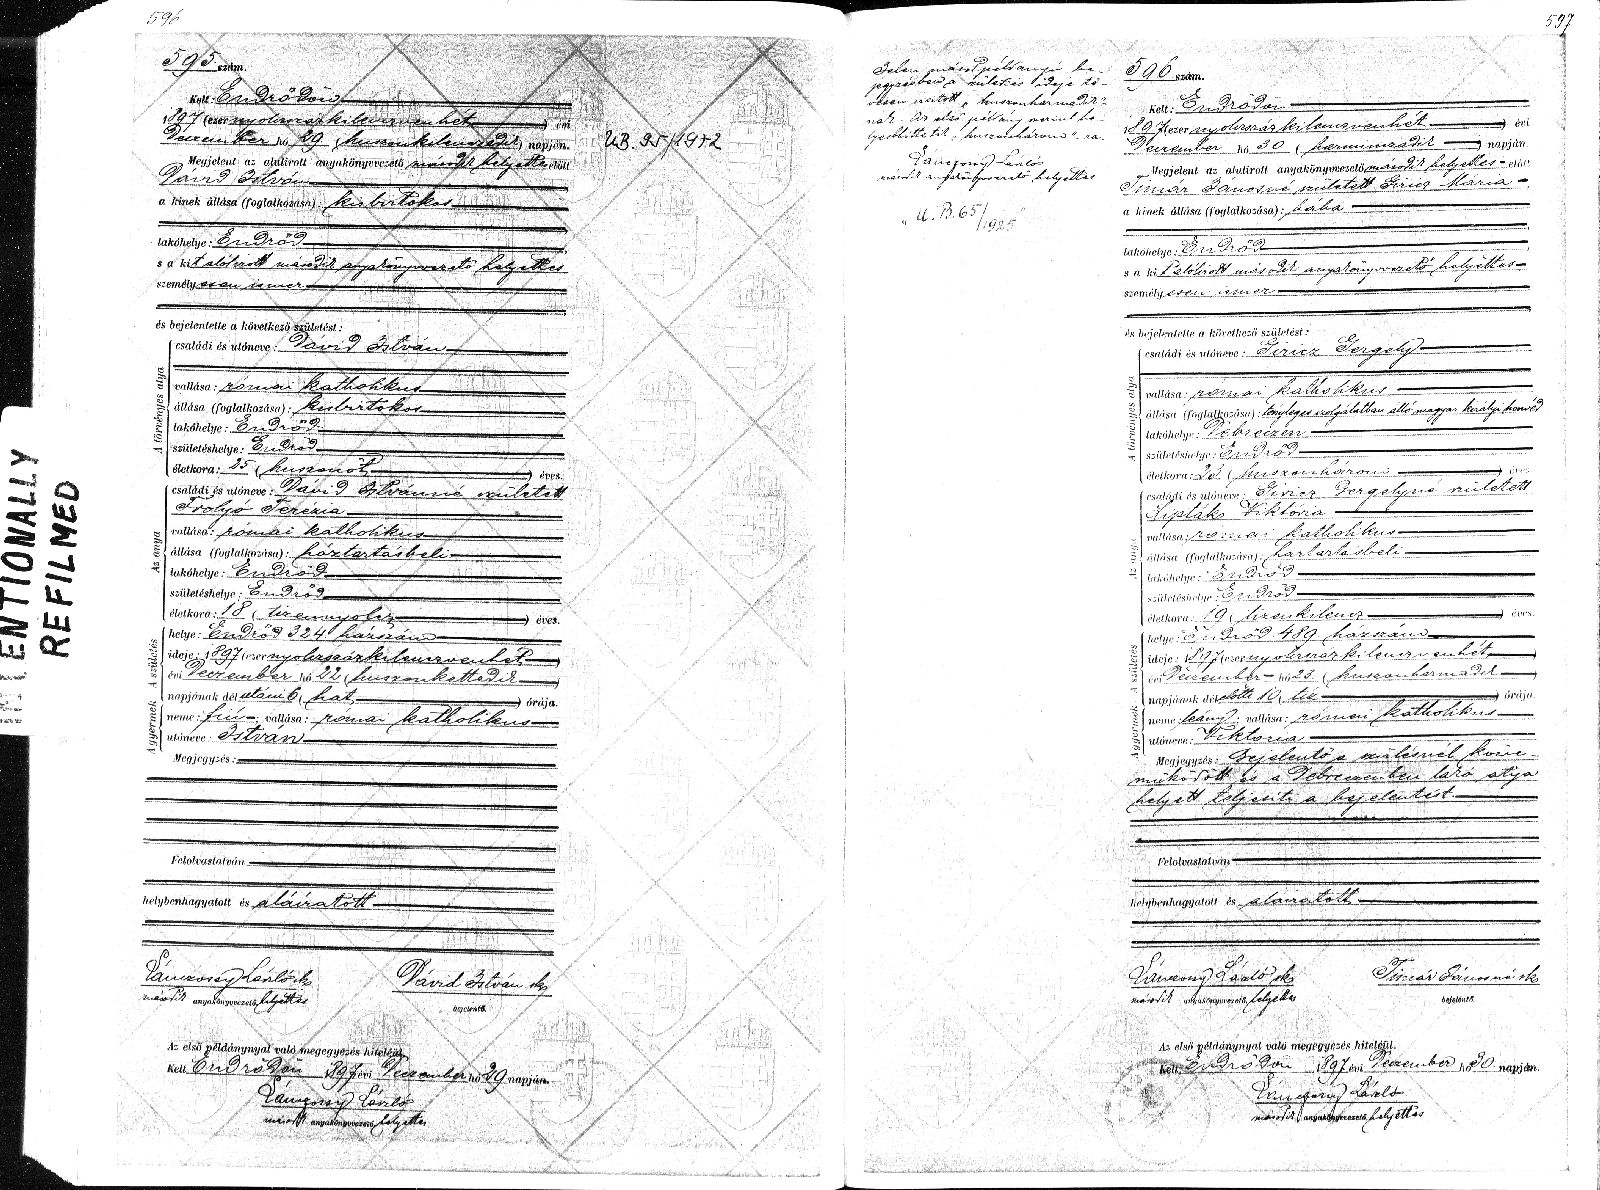 596
595 szám.
Kelt: Endrődön
1897 (ezer nyolczszázkilenczvenhét) évi
Deczember hó 29 (huszonkilenczedik) napján.
Megjelent az alulirott anyakönyvvezető második helyettes előtt
Dávid István
a kinek állása (foglalkozása): kisbirtokos
lakóhelye: Endrőd
s a kit alólirott második anyakönyvvezető helyettes
személyesen ismer
és bejelentette a következő születést:
A törvényes atya
családi és utóneve: Dávid István
vallása: római katholikus
állása (foglalkozása): kisbirtokos
lakóhelye: Endrőd
születéshelye: Endrőd
életkora: 25 (huszonöt) éves.
Az anya
családi és utóneve: Dávid Istvánné született
Frolyó Terézia
vallása: római katholikus
állása (foglalkozása): háztartásbeli
lakóhelye: Endrőd
születéshelye: Endrőd
életkora: 18 (tizennyolcz) éves.
A születés
helye: Endrőd 324 házszám
ideje: 1897 (ezer nyolczszázkilenczvenhét)
évi Deczember hó 22 (huszonkettedik
napjának dél utáni 6 (hat) órája.
A gyermek
neme: fiú; vallása: római katholikus
utóneve: István
Megjegyzés:
Felolvastatván
helybenhagyatott és aláiratott
Lánczossy László sk
második anyakönyvvezető helyettes
Dávid István sk
bejelentő.
Az első példánynyal való megegyezés hiteléül.
Kelt Endrődön 1897 évi Deczember hó 29 napján.
Lánczossy László
második anyakönyvvezető helyettes
UB. 95/1952
ENTIONALLY
REFILMED
597
Jelen másodpéldányú be-
jegyzésben a születés ideje té-
vesen iratott „huszonharmadik"
nak. Az első példány szerint he-
lyesbittetik „huszonhárom"-ra.
Lánczossy László
második anyakönyvvezető helyettes
„U. B. 65/1925"
596 szám.
Kelt: Endrődön
1897 (ezer nyolczszázkilenczvenhét) évi
Deczember hó 30 (harminczadik) napján
Megjelent az alulirott anyakönyvvezető második helyettes előtt
Timár Jánosné született Giricz Mária
a kinek állása (foglalkozása): bába
lakóhelye: Endrőd
s a kit alólirott második anyakönyvvezető helyettes
személyesen ismer
és bejelentette a következő születést:
A törvényes atya
családi és utóneve: Giricz Gergely
vallása: római katholikus
állása (foglalkozása): tényleges szolgálatban álló magyar királyi honvéd
lakóhelye: Debreczen
születéshelye: Endrőd
életkora: 23 (huszonhárom) éves.
Az anya
családi és utóneve: Giricz Gergelyné született
Sipták Viktória
vallása: római katholikus
állása (foglalkozása): háztartásbeli
lakóhelye: Endrőd
születéshelye: Endrőd
életkora: 19 (tizenkilencz) éves.
A születés
helye: Endrőd 489 házszám
ideje: 1897 (ezer nyolczszázkilenczvenhét)
évi Deczember hó 23 (huszonharmadik
napjának dél előtti 10 (tiz) órája.
A gyermek
neme: leány; vallása: római katholikus
utóneve: Viktoria
Megjegyzés: Bejelentő a szülésnél közre-
működött és a Debreczenben lakó atya
helyett teljesiti a bejelentést.
Felolvastatván
helybenhagyatott és aláiratott
Lánczossy László sk
második anyakönyvvezető helyettes
Timár Jánosné sk
bejelentő.
Az első példánynyal való megegyezés hiteléül.
Kelt Endrődön 1897 évi Deczember hó 30 napján.
Lánczossy László
második anyakönyvvezető helyettes